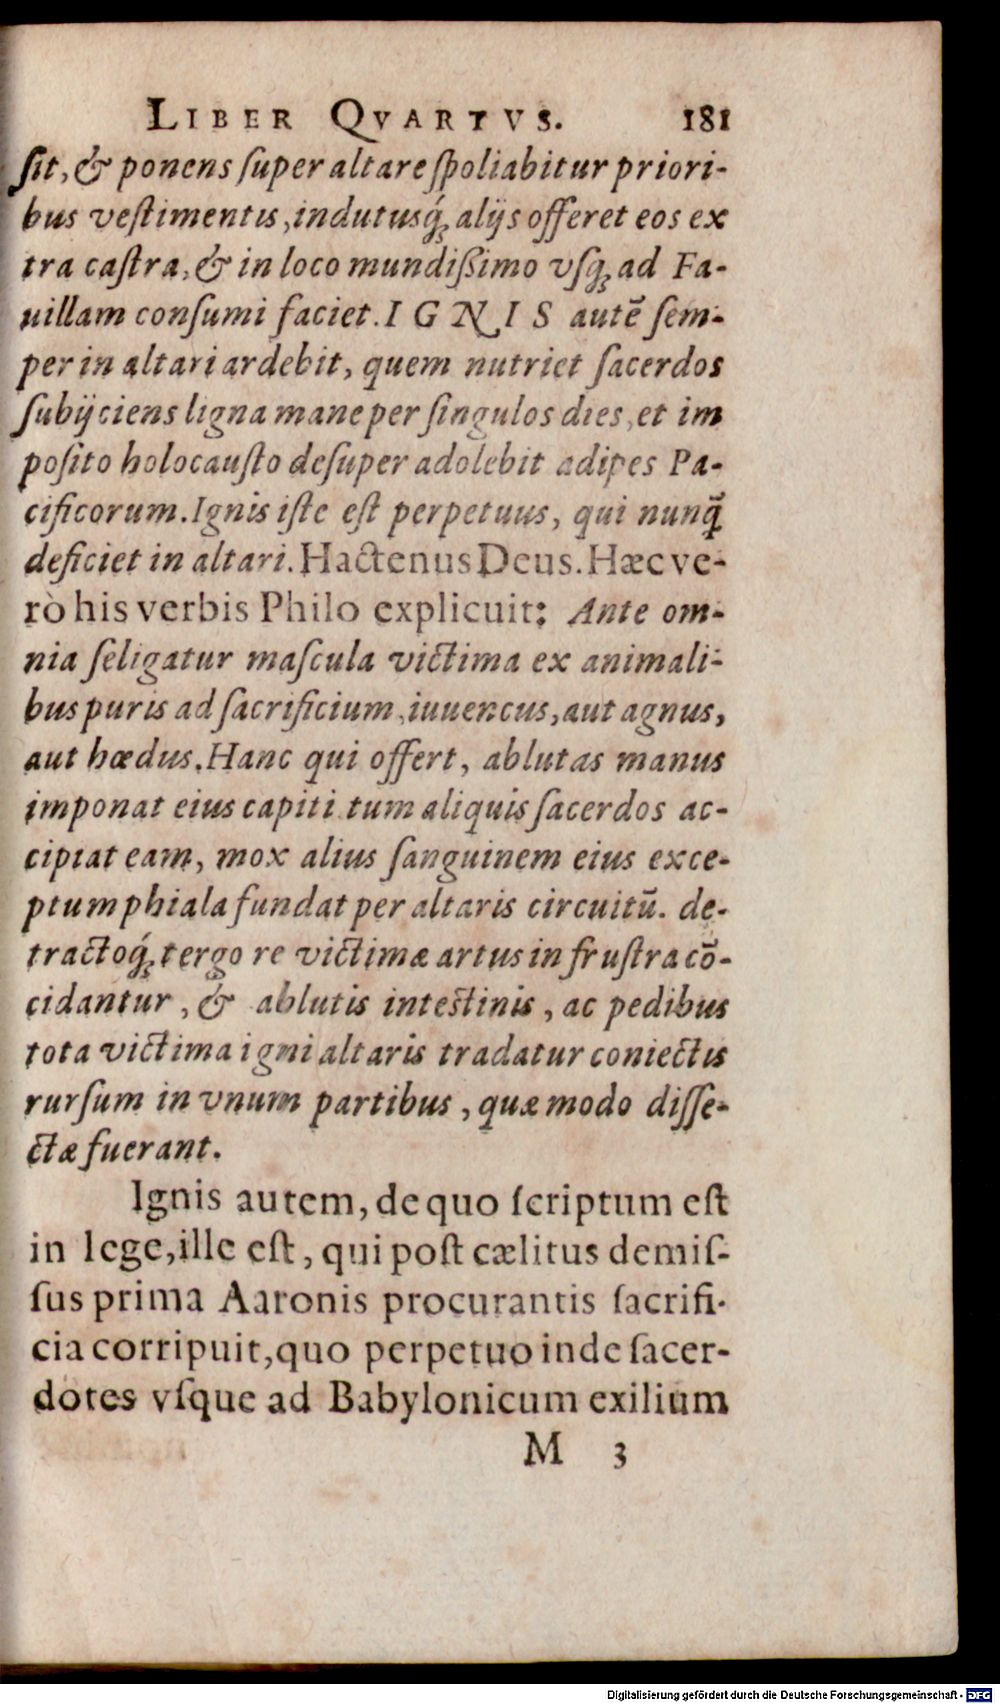 LIBER QVARTVS. 181
ſit, & ponens ſuper altare ſpoliabitur priori-
bus veſtimentis, indutusq́ꝫ alijs offeret eos ex
tra caſtra, & in loco mundiſſimo vſqꝫ ad Fa-
uillam conſumi faciet. IGNIS autē ſem-
per in altari ardebit, quem nutriet ſacerdos
ſubijciens ligna mane per ſingulos dies, et im
poſito holocauſto deſuper adolebit adipes Pa-
cificorum. Ignis iſte eſt perpetuus, qui nunq̃
deficiet in altari. Hactenus Deus. Hæc ve-
rò his verbis Philo explicuit: Ante om-
nia ſeligatur maſcula victima ex animali-
bus puris ad ſacrificium, iuuencus, aut agnus,
aut hœdus. Hanc qui offert, ablutas manus
imponat eius capiti tum aliquis ſacerdos ac-
cipiat eam, mox alius ſanguinem eius exce-
ptum phiala fundat per altaris circuitū. de-
tractoq́ꝫ tergore victimæ artus in fruſtra cō-
cidantur, & ablutis inteſtinis, ac pedibus
tota victima igni altaris tradatur coniectis
rurſum in vnum partibus, quæ modo diſſe-
ctæ fuerant.
Ignis autem, de quo ſcriptum eſt
in lege, ille eſt, qui poſt cælitus demiſ-
ſus prima Aaronis procurantis ſacrifi-
cia corripuit, quo perpetuo inde ſacer-
dotes vſque ad Babylonicum exilium
M 3
Digitalisierung gefördert durch die Deutsche Forschungsgemeinschaft - DFG